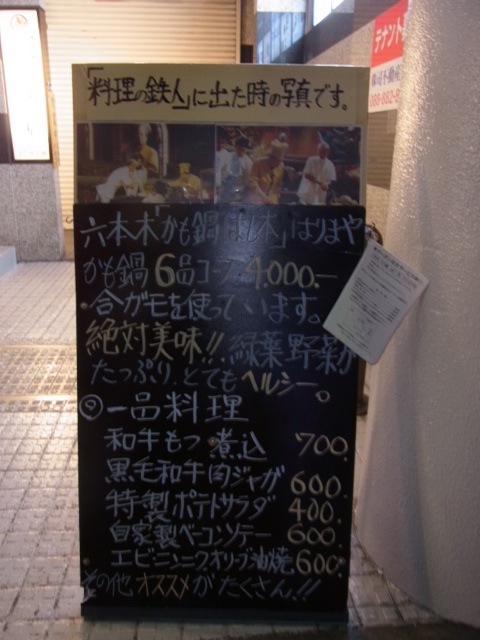 「料理の鉄人」に出た時の写真です。
六本木「かも鍋 ばん木」はりまや
かも鍋 6品コース 4,000.-
合ガモを使っています。
絶対美味!! 緑葉野菜が
たっぷり、とてもヘルシー。
一品料理
和牛もつ煮込 700.
黒毛和牛肉ジャガ 600.
特製ポテトサラダ 400.
自家製ベーコンソテー 600.
エビニンニクオリーブ油焼 600.
その他オススメがたくさん!!
テナント